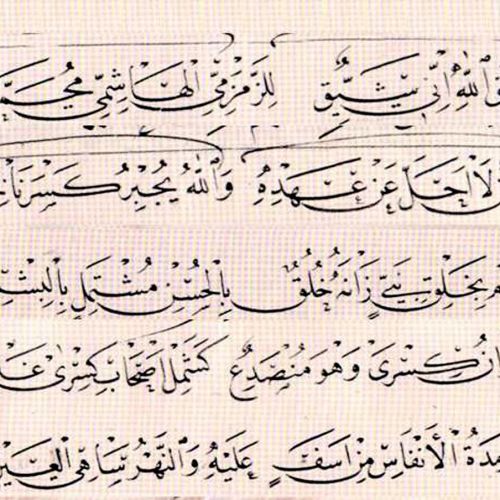 وَاللّٰهِ اِنّى شَيِّقٍ لِلزَّمْزَمِّى الْهَاشِمِّى مُحَمَّ
لَا اَحَلَ عَنْ عَهْدِهُ وَاللّٰهُ يُجْبِرُ كَسْرَنَا
بِخَلْقِ نَبِىٍّ زَانَهُ خُلُقٌ بِالْحُسْنِ مُشْتَمِلٍ بِالْبِشْ
انُ كِسْرٰى وَهُوَ مُنْصَدِعٌ كَشَمْلِ اَصْحَابِ كِسْرٰى غَ
مِدَةُ الْاَنْفَاسِ مِنْ اَسَفٍ عَلَيْهِ وَالنَّهْرُ سَاهِى الْعَيْ